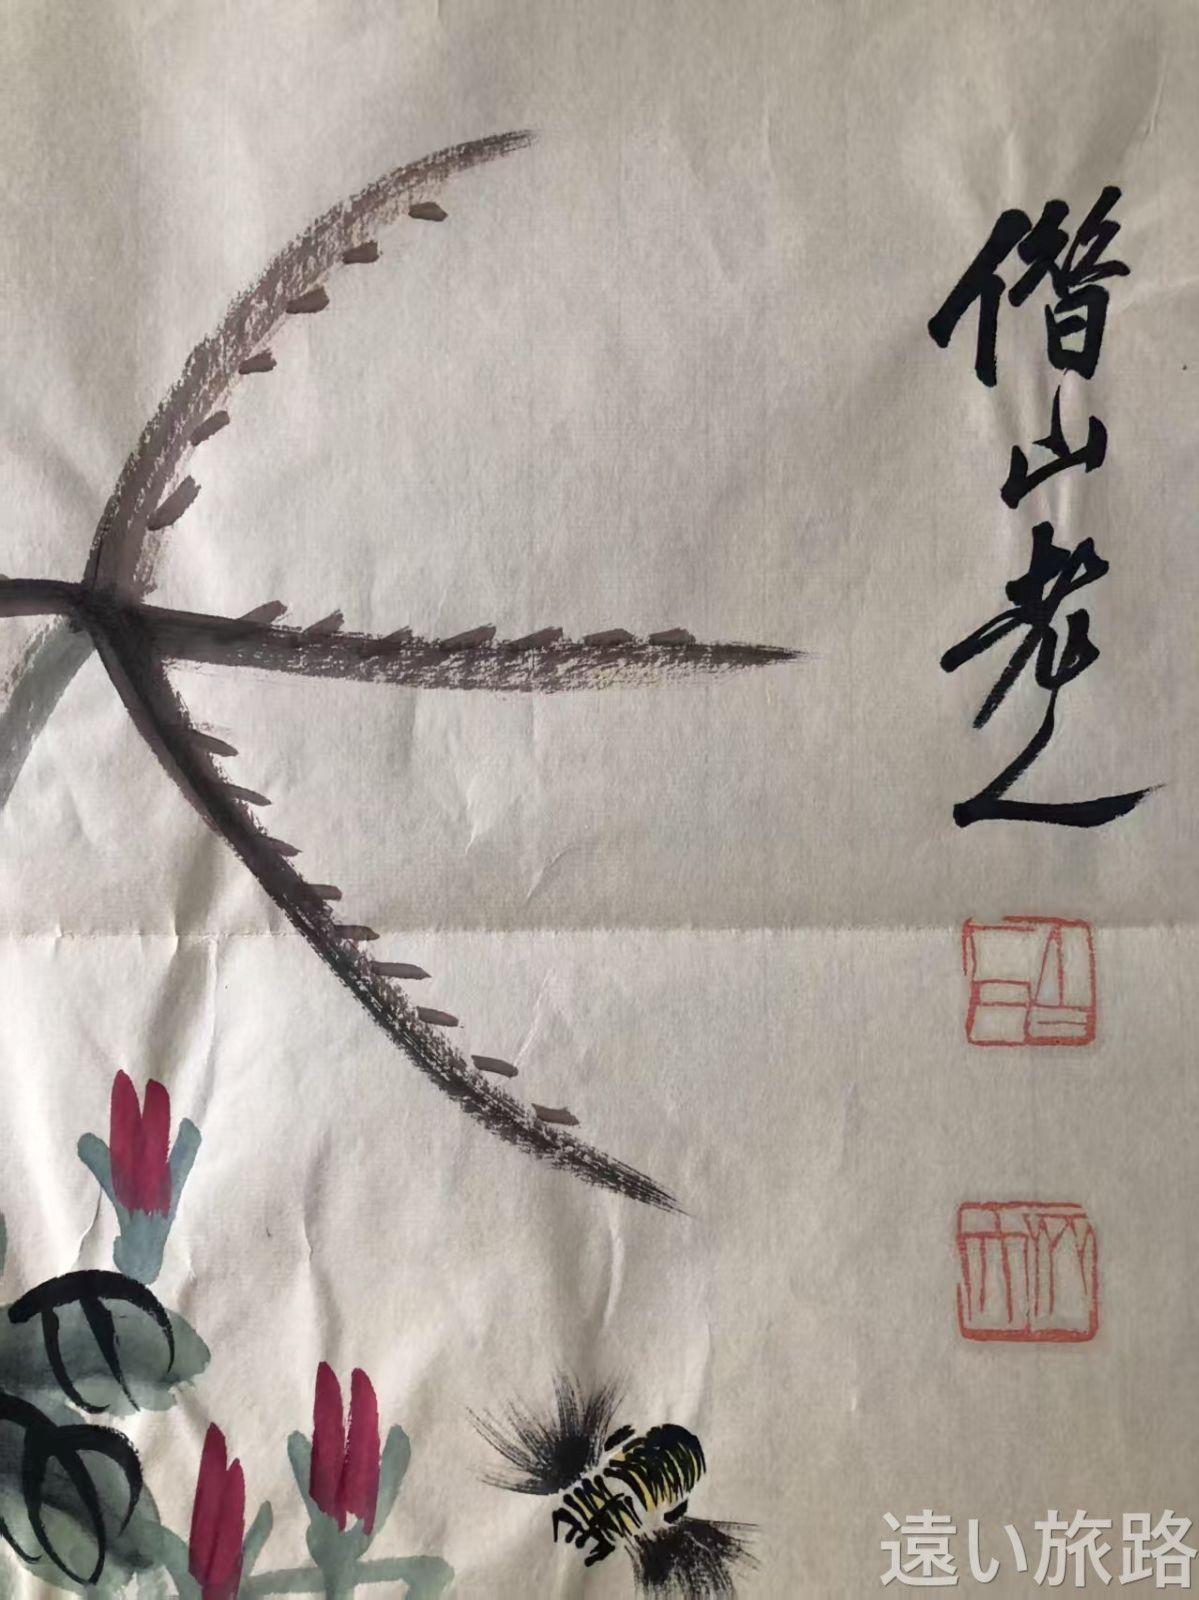 借山老人
遠い旅路